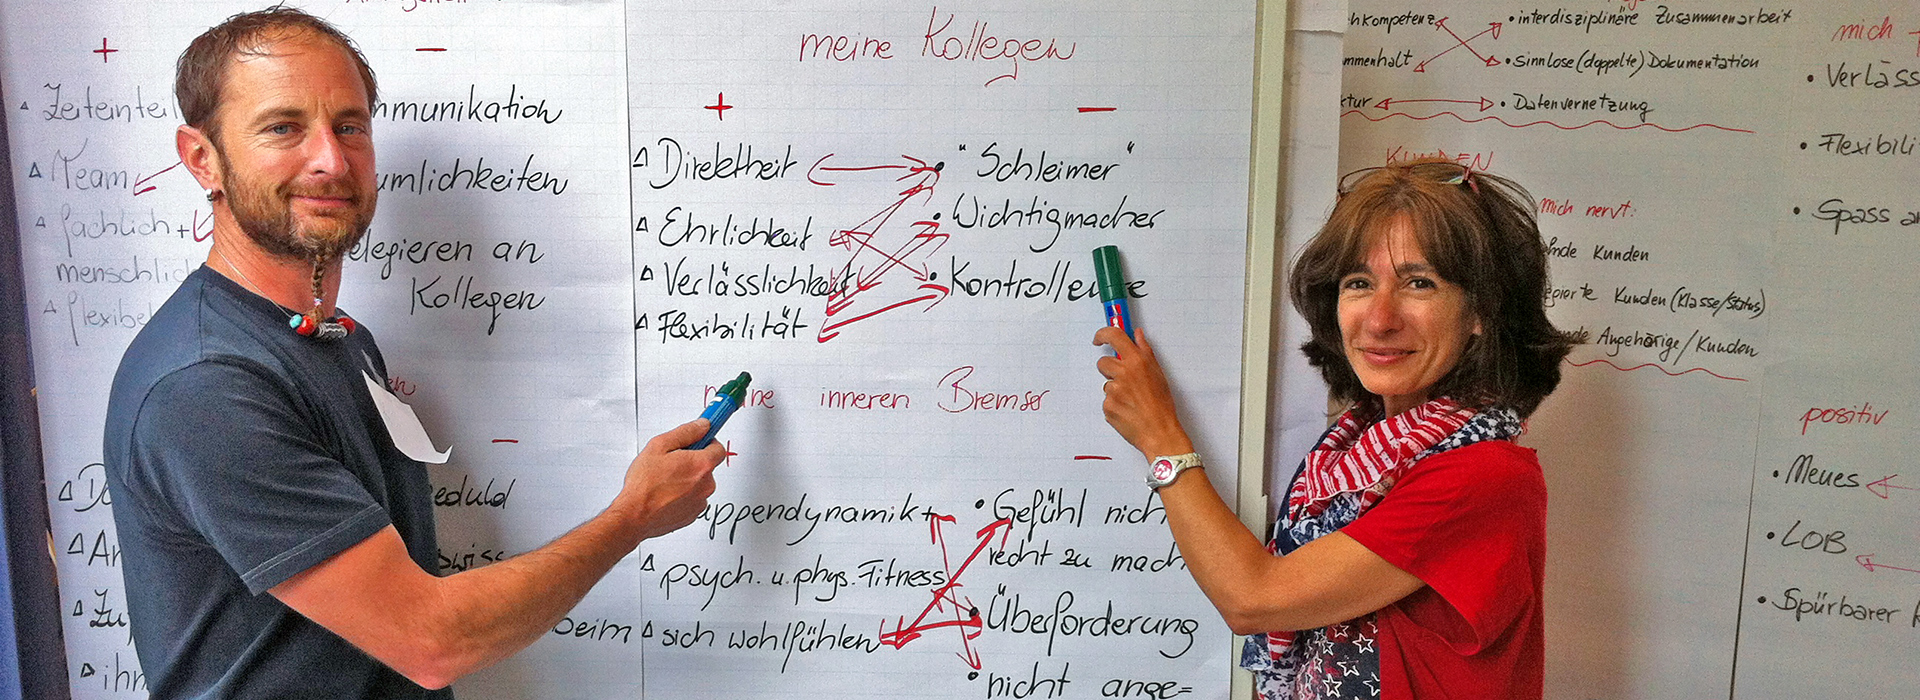 + −
Zeiteintei
mmunikation
Team
umlichkeiten
fachlich +
menschlich
elegieren an
Kollegen
flexibel
−
eduld
beim
meine Kollegen
+ −
Direktheit
"Schleimer"
Ehrlichkeit
Wichtigmacher
Verlässlichkeit
Kontrolleure
Flexibilität
meine inneren Bremser
+ −
uppendynamik
Gefühl nich
recht zu mach
psych. u. phys. Fitness
Überforderung
sich wohlfühlen
nicht ange=
hkompetenz
interdisziplinäre Zusammenarbeit
mmenhalt
sinnlose (doppelte) Dokumentation
ktur
Datenvernetzung
KUNDEN
mich nervt:
nde Kunden
Kunden (Klasse/Status)
nde Angehörige/Kunden
mich
Verläss
Flexibili
Spass a
positiv
Neues
LOB
Spürbarer